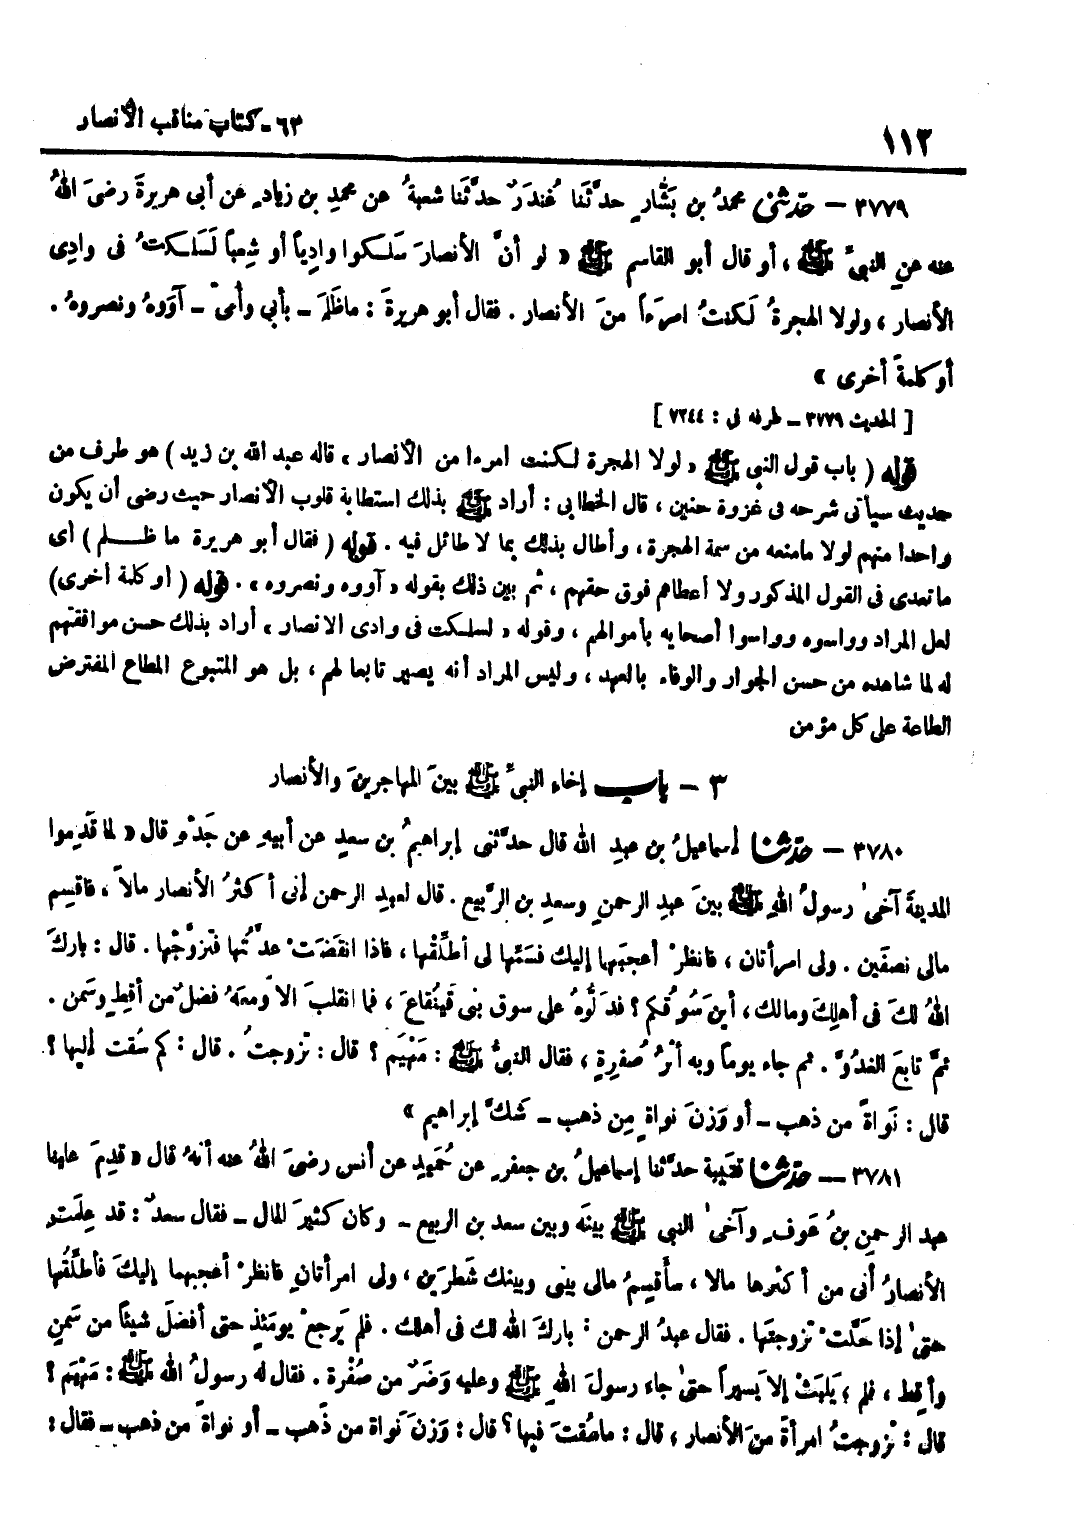 ١١٢
٦٣ - كتاب مناقب الأنصار
٣٧٧٩ – حدّثني محمدُ بن بَشّارٍ حدَّثَنا غُندَرٌ حدَّثَنا شعبةُ عن محمدِ بن زيادٍ عن أبى هريرةَ رضىَ اللهُ
عنه عنِ النبىِّ ﷺ ، أو قال أبو القاسم ﷺ « لو أنَّ الأنصارَ سَلَكوا وادِياً أو شِعباً لَسَلَكتُ فى وادِى
الأنصار ، ولولا الهجرةُ لَكنتُ امرَءاً منَ الأنصار . فقال أبو هريرةَ : ماظَلَمَ ــ بأبي وأمى ــ آوَوهُ ونصروهُ .
أو كلمةً أخرى »
[ الحديث ٣٧٧٩ ــ طرفه فى : ٧٢٤٤ ]
قوله ( باب قول النبي ﷺ « لولا الهجرة لكنت امرءا من الأنصار ، قاله عبد الله بن زيد ) هو طرف من
حديث سيأتى شرحه فى غزوة حنين ، قال الخطابى : أراد ﷺ بذلك استطابة قلوب الأنصار حيث رضى أن يكون
واحدا منهم لولا مامنعه من سمة الهجرة ، وأطال بذلك بما لا طائل فيه . قوله ( فقال أبو هريرة ما ظلــم ) أى
ماتعدى فى القول المذكور ولا أعطاهم فوق حقهم ، ثم بين ذلك بقوله « آووه ونصروه » . قوله ( أو كلمة أخرى )
لعل المراد وواسوه وواسوا أصحابه بأموالهم ، وقوله « لسلكت فى وادى الانصار » أراد بذلك حسن موافقتهم
له لما شاهده من حسن الجوار والوفاء بالعهد ، وليس المراد أنه يصير تابعا لهم ، بل هو المتبوع المطاع المفترض
الطاعة على كل مؤمن
٣ – باب إخاء النبىِّ ﷺ بينَ المهاجرينَ والأنصار
٣٧٨٠ – حدّثنا إسماعيلُ بن عبدِ الله قال حدَّثنى إبراهيمُ بن سعدٍ عن أبيهِ عن جَدِّه قال « لما قَدِموا
المدينةَ آخىٰ رسولُ اللهِ ﷺ بينَ عبدِ الرحمنِ وسعدِ بن الرَّبيع . قال لعبدِ الرحمن إنى أكثرُ الأنصار مالاً ، فاقسِم
مالى نصفَين . ولى امرأتان ، فانظرْ أعجبَهما إليك فسَمِّها لى أطلِّقْها ، فاذا انقضَتْ عدَّتُها فتزوَّجْها . قال : باركَ
اللهُ لكَ فى أهلِكَ ومالك ، أينَ سُوقُكم ؟ فدَلُّوهُ على سوق بنى قَينُقاعَ ، فما انقلبَ الاّ ومعهُ فضلٌ من أقِطٍ وسَمن .
ثمَّ تابعَ الغدُوَّ . ثم جاء يوماً وبه أثرُ صُفرةٍ ، فقال النبىُّ ﷺ : مَهْيَم ؟ قال : تزوجتُ . قال : كم سُقت إليها ؟
قال : نَواةً من ذهب ــ أو وَزنَ نواةٍ مِن ذهب ــ شكَّ إبراهيم »
٣٧٨١ – حدّثنا قتيبة حدَّثنا إسماعيلُ بن جعفرٍ عن حُمَيدٍ عن أنس رضىَ اللهُ عنه أنهُ قال « قدِمَ علينا
عبد الرحمنِ بنُ عَوفٍ وآخىٰ النبى ﷺ بينَه وبين سعد بن الربيع ــ وكان كثيرَ المال ــ فقال سعدٌ : قد علِمَتِ
الأنصارُ أنى من أكثرها مالا ، سأقسِمُ مالى بينى وبينك شَطرَين ، ولى امرأتانِ فانظرْ أعجبهما إليكَ فأطلِّقُها
حتىٰ إذا حَلَّتْ تزوجتَها . فقال عبدُ الرحمن : باركَ الله لك فى أهلك . فلم يَرجعْ يومَئذٍ حتى أفضلَ شيئاً من سَمنٍ
وأقِط ، فلم يَلبَثْ إلا يَسيراً حتىٰ جاء رسولَ اللهِ ﷺ وعليه وَضَرٌ من صُفْرة . فقال له رسولُ الله ﷺ : مَهْيَم ؟
قال : تزوجتُ امرأةً منَ الأنصار ، قال : ماسُقتَ فيها ؟ قال : وَزنَ نواة من ذَهب ــ أو نواةً من ذهب ــ فقال :